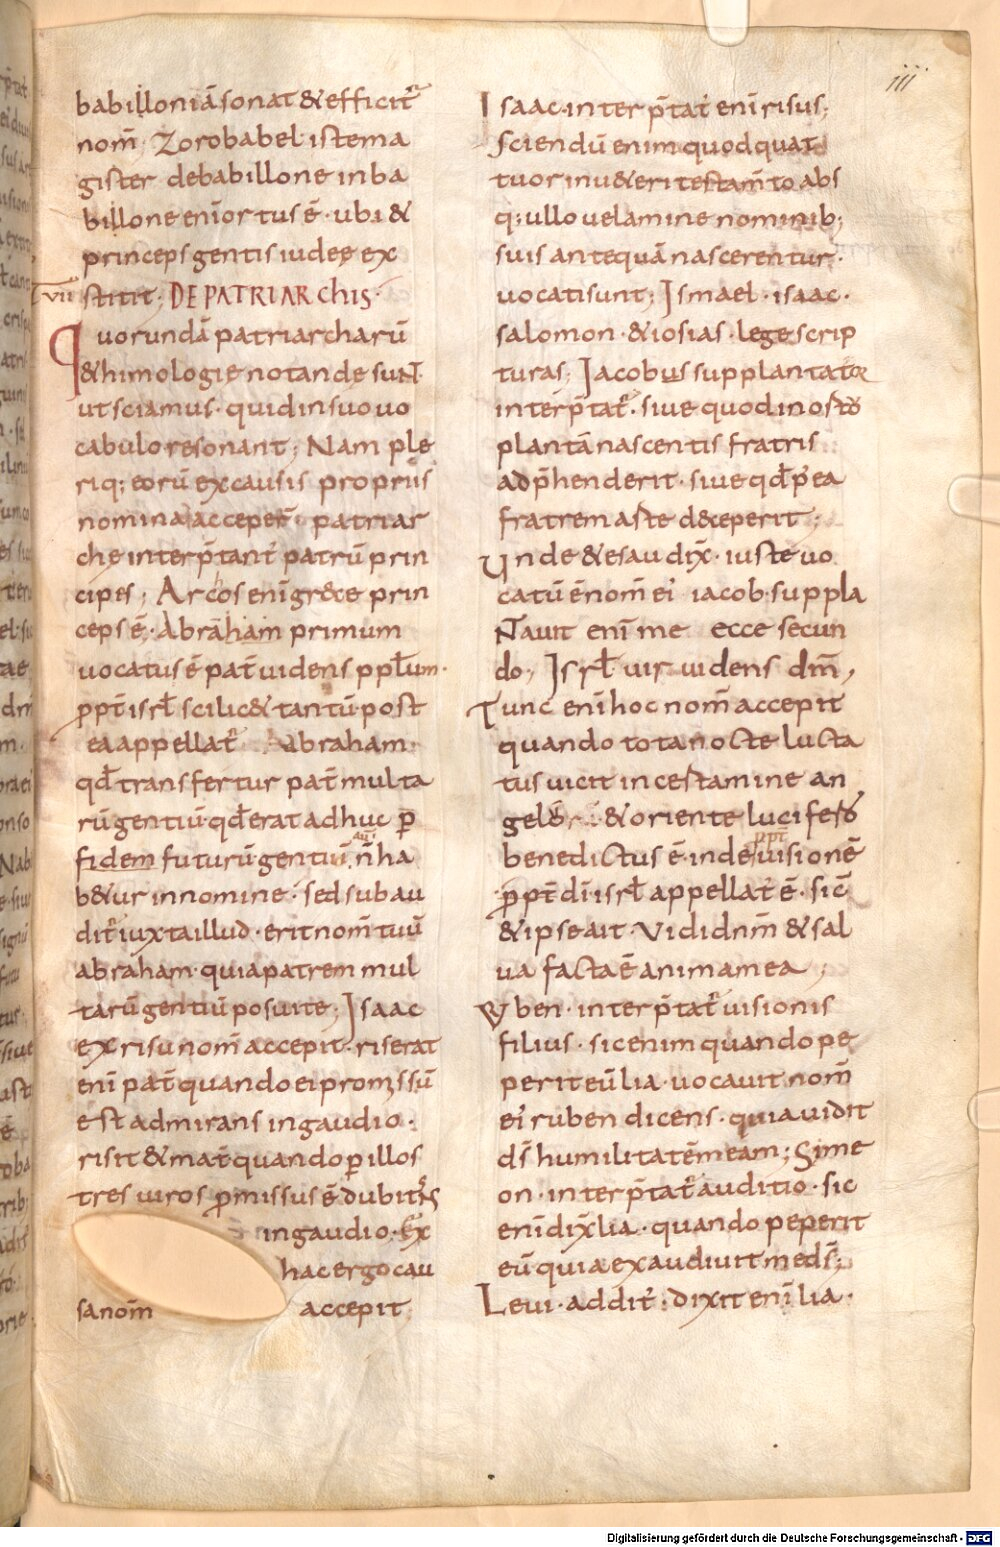 iii
babilloniā sonat & efficit᷑
nom̄; Zorobabel iste ma
gister de babillone in ba
billone enī ortus ē · ubi &
princeps gentis iudeę ex
vii stitit; DE PATRIARchis·
Quorundā patriarcharū
&himologie notande suNT
ut sciamus · quid in suo uo
cabulo resonant; Nam ple
riq; eorū ex causis propriis
nomina acceper̄ · patriar
che interp̄tant᷑ patrū prin
cipes; Arcos enī grece prin
ceps ē · Abraham primum
uocatus ē pat̄ uidens ppl̄um·
ꝓpt̄ isrl̄ scilic& tantū post
ea appellat᷑ Abraham·
qđ transfertur pat̄ multa
rū gentiū · qđ erat adhuc ꝑ
fidem futurū gentiū n̄ ha
b&ur in nomine · sed subau
dit᷑ iuxta illud · erit nom̄ tuū
abraham · quia patrem mul
tarū gentiū posui te; Isaac
ex risu nom̄ accepit · riserat
enī pat̄ quando ei promissū
est admirans in gaudio ·
risit & mat̄ quando ꝑ illos
tres uiros ꝓmissus ē dubitās
in gaudio · Ex
hac ergo cau
sa nom̄ accepit
Isaac · interp̄tat᷑ enī risus;
Sciendū enim quod quat
tuor in u&eri testam̄to abs
q; ullo uelamine nominib;
suis antequā nascerentur·
uocati sunt; Ismael · isaac ·
salomon · & iosias · lege scrip
turas; Iacobus supplantator
interp̄tat᷑ · siue quod in ortō
plantā nascentis fratris
adp̄henderit · siue qđ p̄ea
fratrem arte d&ceperit;
Unde & esau dix̄ · iuste uo
catū ē nom̄ ei᷒ iacob · suppla
Nauit enī me ecce secun
do; Isrl̄ uir uidens dm̄;
Tunc enī hoc nom̄ accepit
quando tota nocte lucta
tus uicit in certamine an
gelū & oriente lucifero
benedictus ē · inde uisionē
ppt̄
ꝓpt̄ dī isrl̄ appellat᷒ ē · sic̄
& ipse ait · Vidi dnm̄ & sal
ua facta ē anima mea;
Ruben · interp̄tat᷑ uisionis
filius · sic enim quando pe
perit eū lia · uocauit nom̄
ei᷒ ruben dicens · quia uidit
ds̄ humilitatē meam; Sime
on · interp̄tat᷑ auditio · sic
enī dix̄ lia · quando peperit
eū quia exaudiuit me ds̄;
Leui · addit᷒; dixit enī lia ·
Digitalisierung gefördert durch die Deutsche Forschungsgemeinschaft - DFG